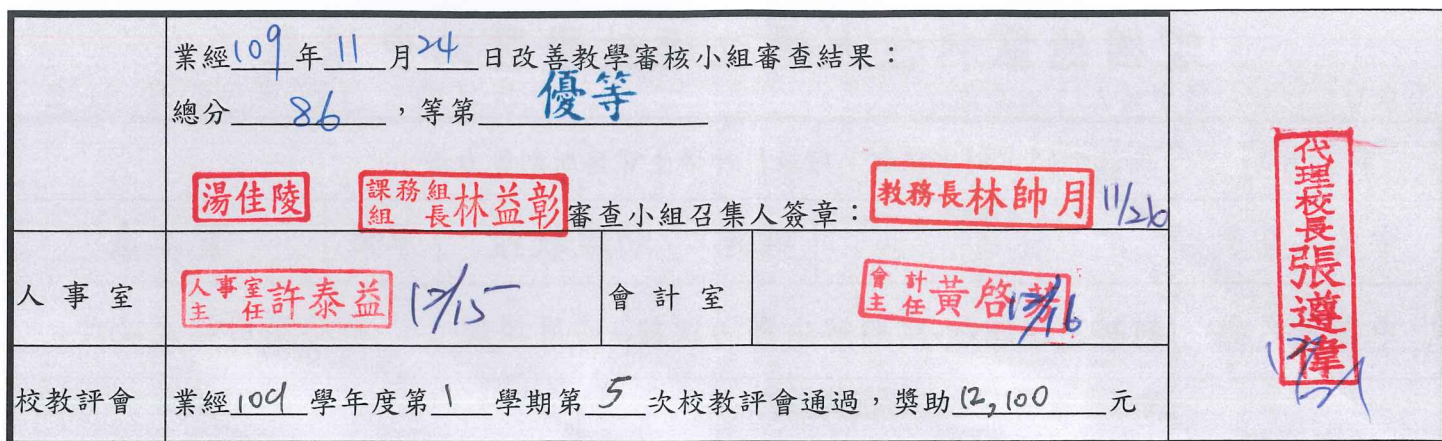 業經109年11月24日改善教學審核小組審查結果：
總分86，等第優等
湯佳陵 課務組組長林益彰 審查小組召集人簽章：教務長林帥月 11/26
人事室 人事室主任許泰益 12/15 會計室 會計主任黃啓 12/16
代理校長張遵偉
校教評會 業經109學年度第1學期第5次校教評會通過，獎助12,100元